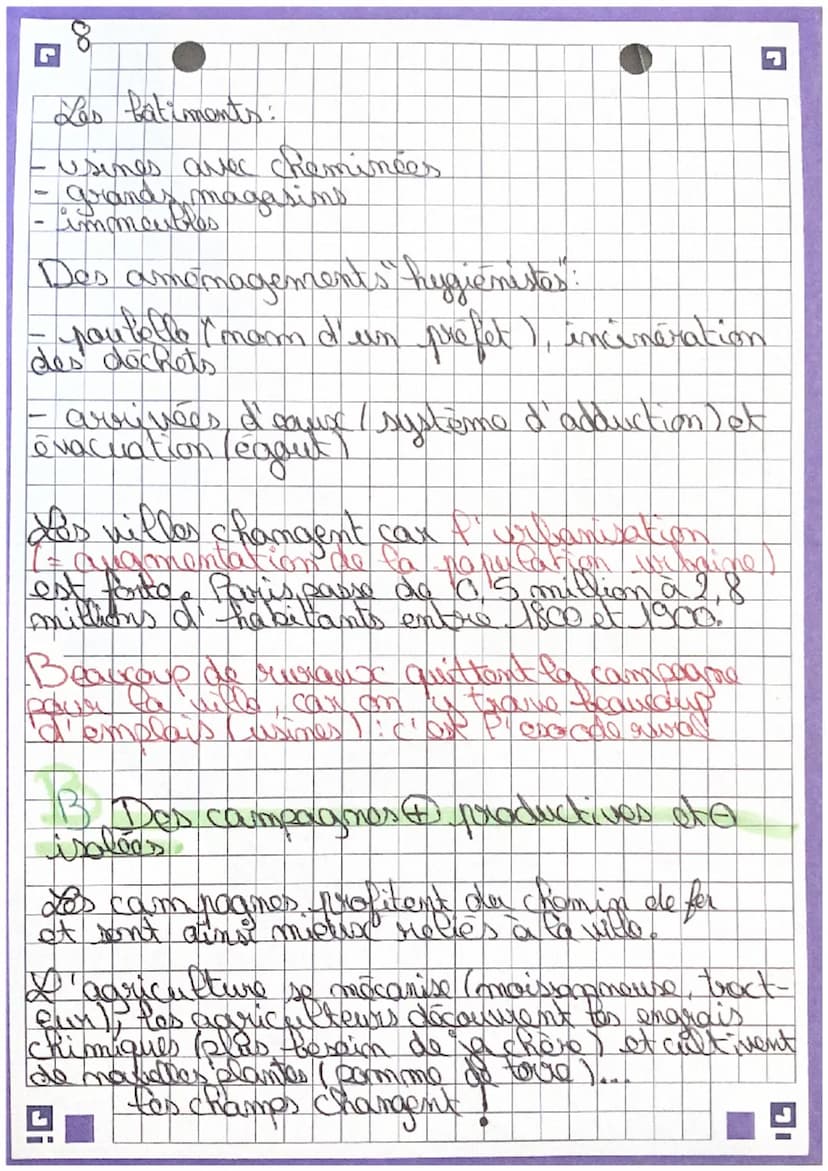 8
Les bâtiments:
- usines avec cheminées
- grands magasins
- immeubles
Des aménagements "hygiénistes":
- poubelle (nom d'un préfet), incinération
des déchets
- arrivées d'eaux (système d'adduction) et
évacuation (égout)
Les villes changent car l'urbanisation
(= augmentation de la population urbaine)
est forte. Paris passe de 0,5 million à 2,8
millions d'habitants entre 1800 et 1900.
Beaucoup de ruraux quittent la campagne
pour la ville, car on y trouve beaucoup
d'emplois (usines) : c'est l'exode rural
B Des campagnes ⊕ productives et ⊖
isolées
Les campagnes profitent du chemin de fer
et sont ainsi mieux reliés à la ville.
L'agriculture se mécanise (moissonneuse, tract-
eur), les agriculteurs découvrent les engrais
chimiques (plus besoin de jachère) et cultivent
de nouvelles plantes (pomme de terre)...
les champs changent !